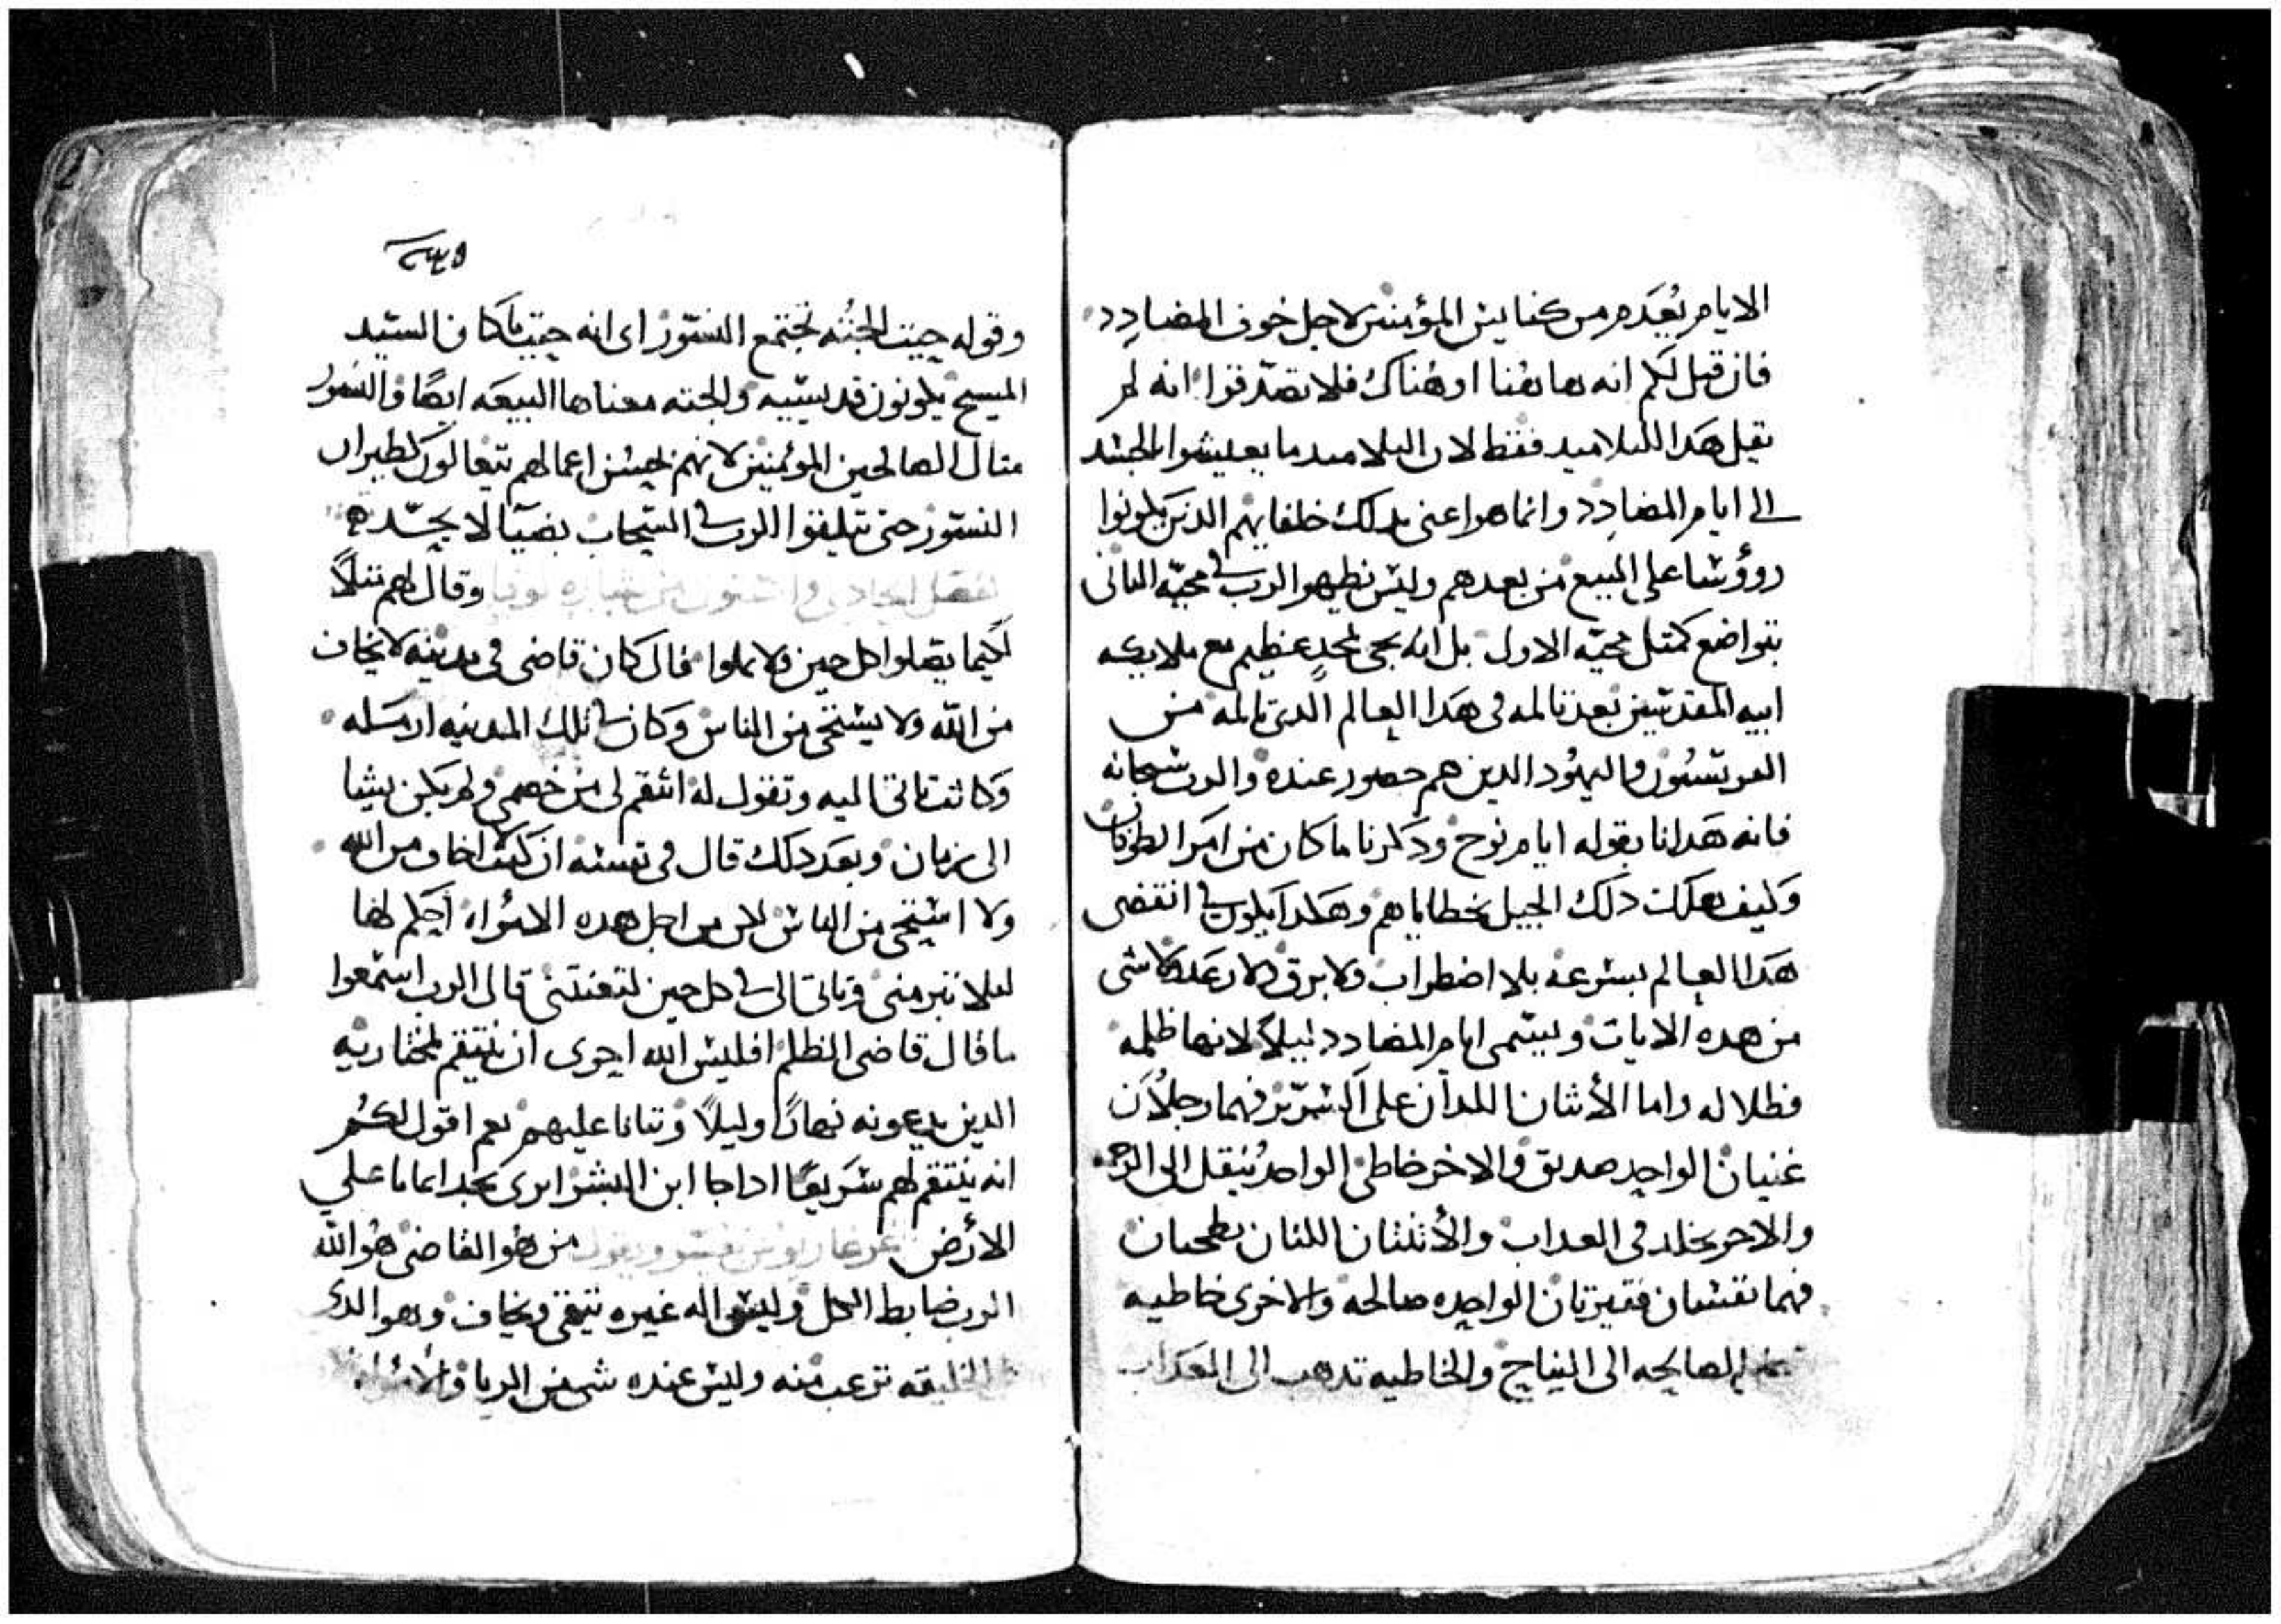 الايام بعَدم من كنايس المؤمنين لاجل خوف المضادد
فان قيل لكم انه هاهنا او هناك فلا تصدقوا انه لم
يقيل هدا للتلاميد فقط لان التلاميد ما يعيشوا بالجسد
الى ايام المضادد وانما هو اعنى بدلك خلفايهم الدين يكونوا
روؤسا على البيع من بعدهم وليس نظهر الرب في مجيه التانى
بتواضع كمتل مجيه الاول بل انه يجى بمجد عظيم مع ملايكه
ابيه المقدسين بعد تالمه فى هدا العالم الدى تالمه من
الفريسيون واليهود الدين هم حضور عنده والرب سبحانه
فانه هدانا بقوله ايام نوح ودكرنا ما كان من امر الطوفان
وكيف هلك دلك الجيل بخطاياهم وهكدا يكون في انقضى
هدا العالم بسرعه بلا اضطراب ولا برق ولا رعد ولا شى
من هده الايات ويسمى ايام المضادد ليلاً لانها ظلمه
وظلاله واما الأثنان اللدان على السرير فهما رجلان
غنيان الواحد صديق والاخر خاطى الواحد ينقل الى
والاخر يخلد فى العداب والأثنتان اللتان يطحنان
فهما نفسان فقيرتان الواحده صالحه والاخرى خاطيه
الصالحه الى النياح والخاطيه تدهب الى العداب
٢٤٥
وقوله حيت الجته تجتمع النسور اى انه حيت ما كان السيد
المسيح يكونون قديسيه والجته معناها البيعه ايضًا والنسور
متال الصالحين المؤمنين لانهم بحسن اعمالهم يتعالون كطيران
النسور حتى يتلقوا الرب في السحاب بضيآ لا يحد
وقال لهم متلاً
لكيما يصلوا كل حين ولا يملوا قال كان قاضى فى مدينه لا يخاف
من الله ولا يستحى من الناس وكان في تلك المدينه ارمله
وكانت تاتى اليه وتقول له انتقم لى من خصمى ولم يكن يشا
الى زمان وبعد دلك قال فى نفسه ان كنت لا اخاف من الله
ولا استحى من الناس لكن من اجل هده الامراه احكم لها
ليلا تبرمنى وتاتى الى في كل حين لتعنتنى قال الرب استمعوا
ما قال قاضى الظلم افليس الله احرى ان ينتقم لمختاريه
الدين يدعونه نهارًا وليلاً وتتانا عليهم نعم اقول لكم
انه ينتقم لهم سريعًا ادا جا ابن البشر اترى يجد ايمانا على
الأرض من هو القاضى هو الله
الرب ضابط الكل وليس اله غيره يتقى ويخاف وهو الدى
الخليقه ترعب منه وليس عنده شى من الريا